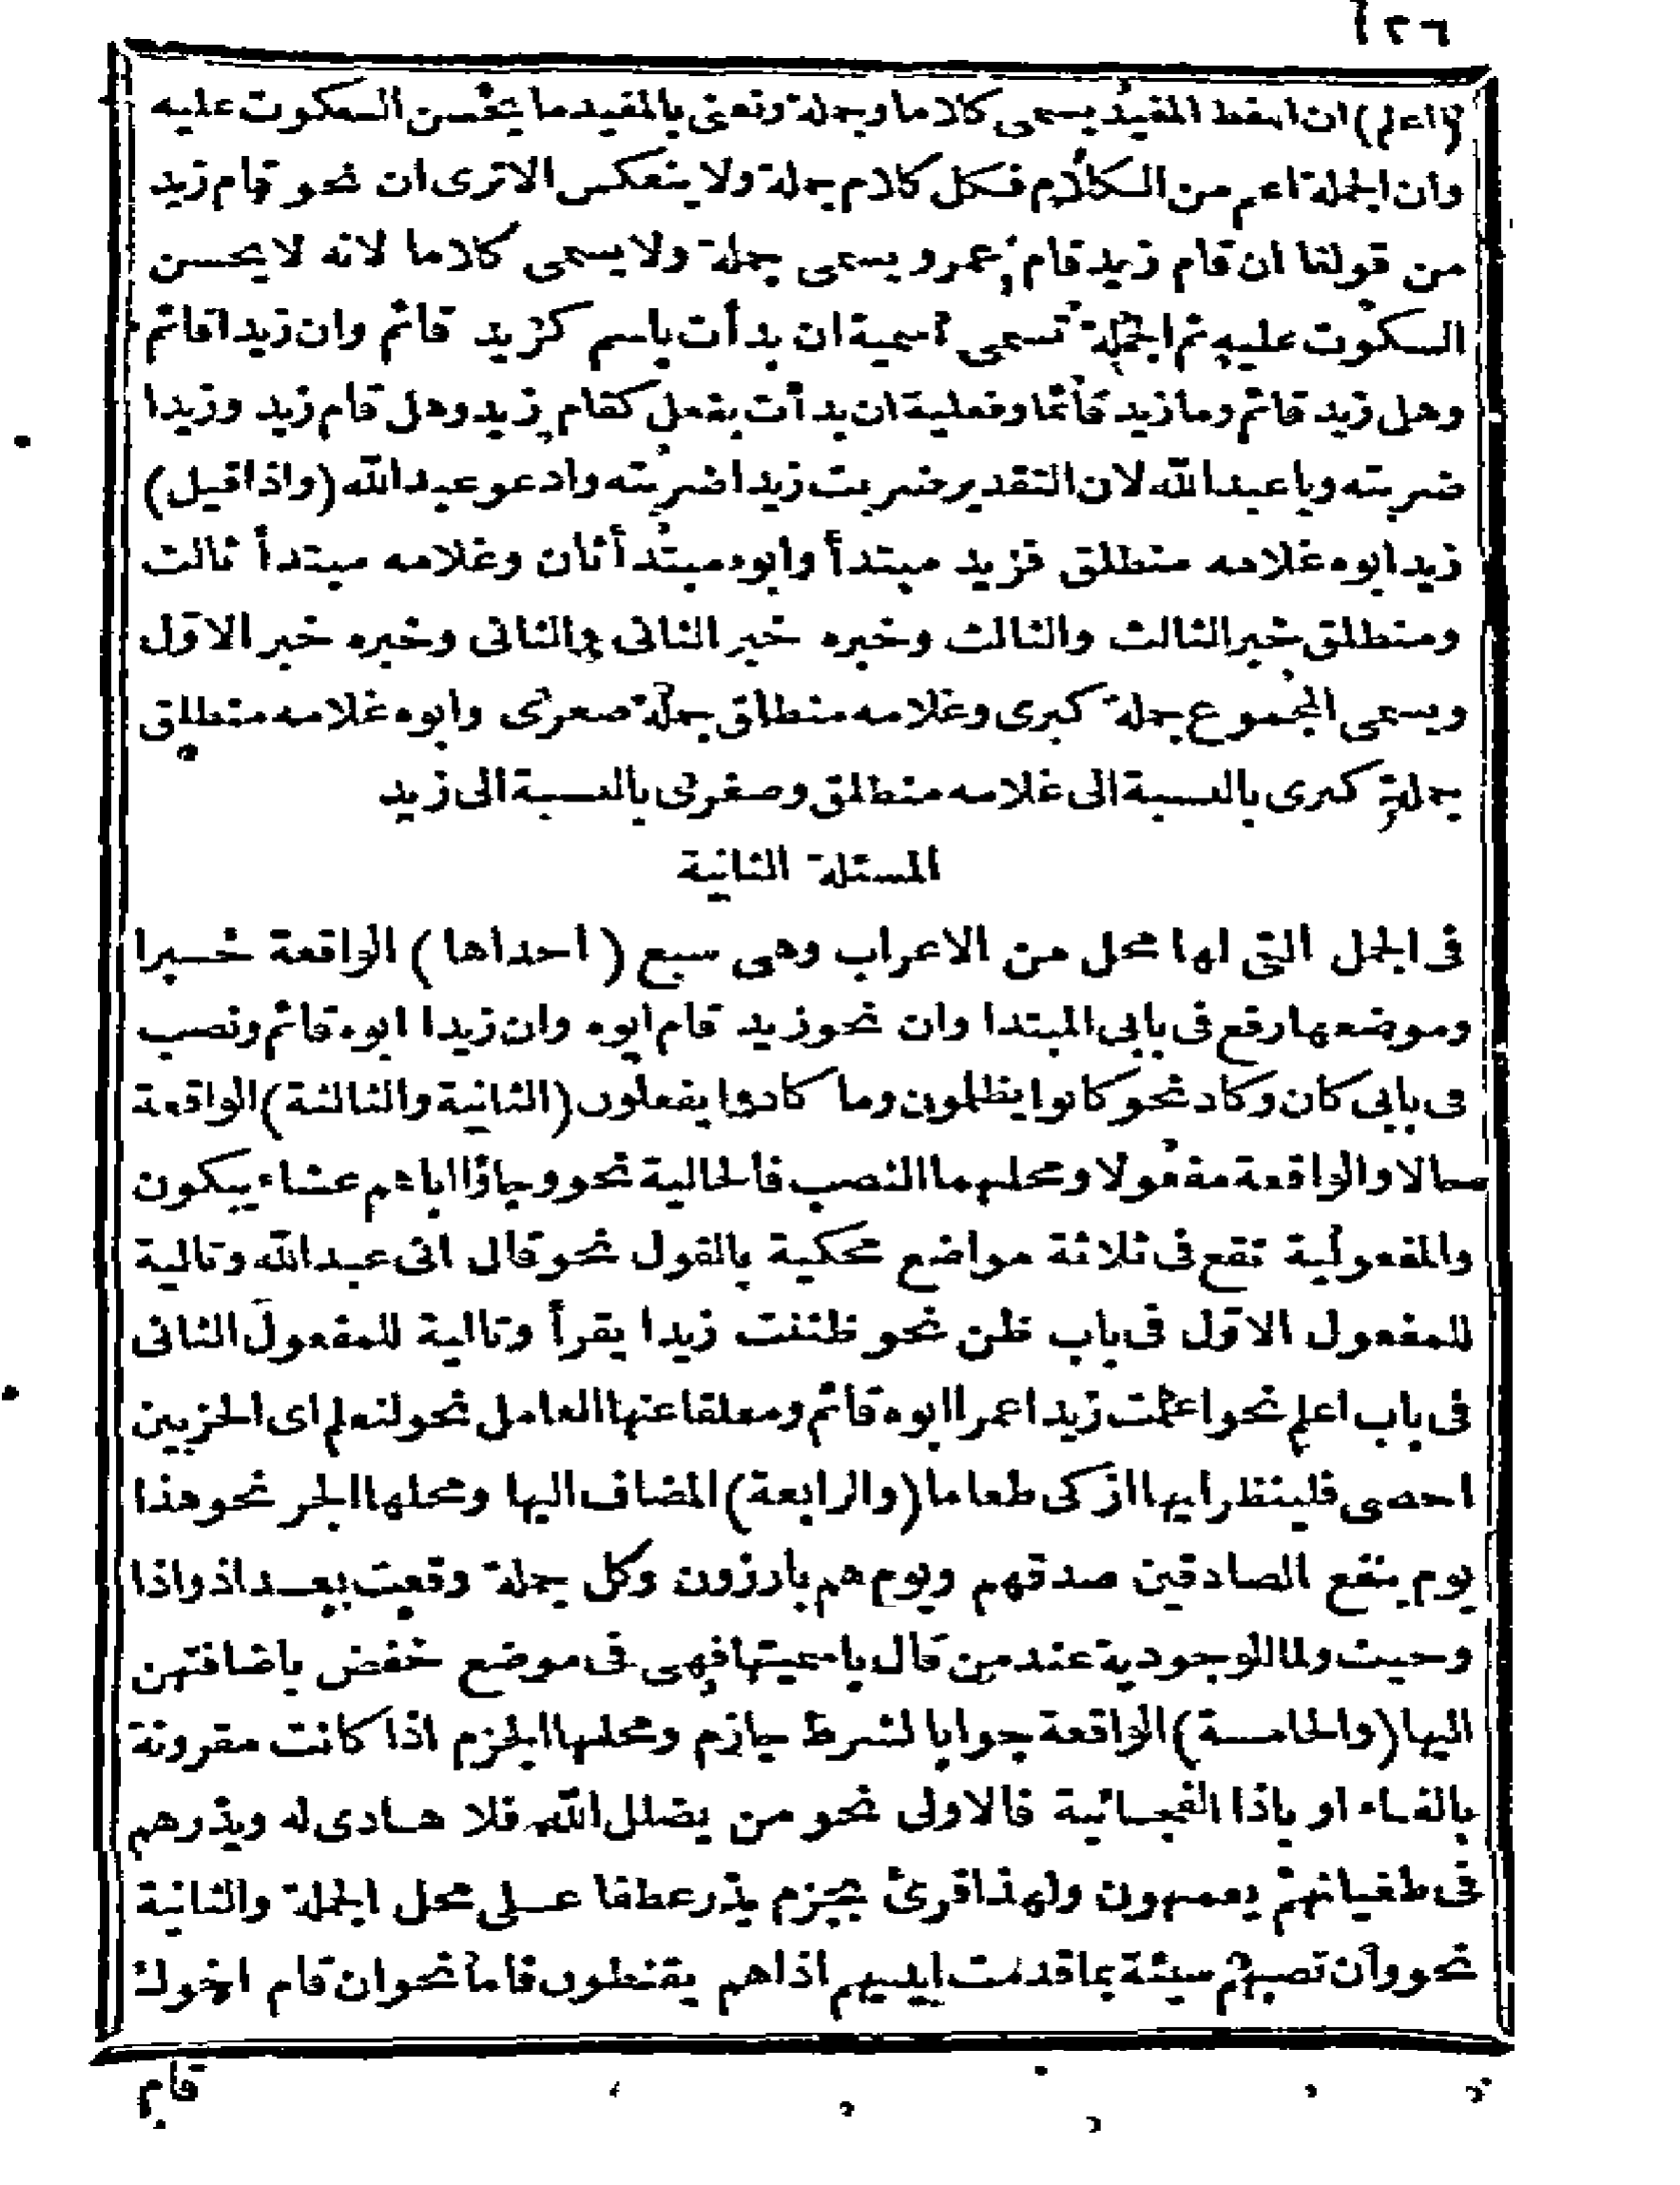 ١٢٦
(اعلم) ان اللفظ المفيد يسمى كلاما وجملة ونعنى بالمفيد ما يحسن السكوت عليه
وان الجملة اعم من الكلام فكل كلام جملة ولا ينعكس الا ترى ان نحو قام زيد
من قولنا ان قام زيد قام عمرو يسمى جملة ولا يسمى كلاما لانه لا يحسن
السكوت عليه ثم الجملة تسمى اسمية ان بدأت باسم كزيد قائم وان زيدا قائم
وهل زيد قائم وما زيد قائما وفعلية ان بدأت بفعل كقام زيد وهل قام زيد وزيدا
ضربته ويا عبد الله لان التقدير ضربت زيدا ضربته وادعو عبد الله (واذا قيل)
زيد ابوه غلامه منطلق فزيد مبتدأ وابوه مبتدأ ثان وغلامه مبتدأ ثالث
ومنطلق خبر الثالث والثالث وخبره خبر الثانى والثانى وخبره خبر الاول
ويسمى المجموع جملة كبرى وغلامه منطلق جملة صغرى وابوه غلامه منطلق
جملة كبرى بالنسبة الى غلامه منطلق وصغرى بالنسبة الى زيد
المسئلة الثانية
فى الجمل التى لها محل من الاعراب وهى سبع (احداها) الواقعة خبرا
وموضعها رفع فى بابى المبتدا وان نحو زيد قام ابوه وان زيدا ابوه قائم ونصب
فى بابى كان وكاد نحو كانوا يظلمون وما كادوا يفعلون (الثانية والثالثة) الواقعة
حالا والواقعة مفعولا ومحلهما النصب فالحالية نحو وجاؤا اباهم عشاء يبكون
والمفعولية تقع فى ثلاثة مواضع محكية بالقول نحو قال انى عبد الله وتالية
للمفعول الاول فى باب ظن نحو ظننت زيدا يقرأ وتالية للمفعول الثانى
فى باب اعلم نحو اعلمت زيدا عمرا ابوه قائم ومعلقا عنها العامل نحو لنعلم اى الحزبين
احصى فلينظر ايها ازكى طعاما (والرابعة) المضاف اليها ومحلها الجر نحو هذا
يوم ينفع الصادقين صدقهم ويوم هم بارزون وكل جملة وقعت بعد اذ واذا
وحيث ولما الوجودية عند من قال باسميتها فهى فى موضع خفض باضافتهن
اليها (والخامسة) الواقعة جوابا لشرط جازم ومحلها الجزم اذا كانت مقرونة
بالفاء او باذا الفجائية فالاولى نحو من يضلل الله فلا هادى له ويذرهم
فى طغيانهم يعمهون ولهذا قرئ بجزم يذر عطفا على محل الجملة والثانية
نحو وان تصبهم سيئة بما قدمت ايديهم اذا هم يقنطون فاما نحو ان قام اخوك
قام